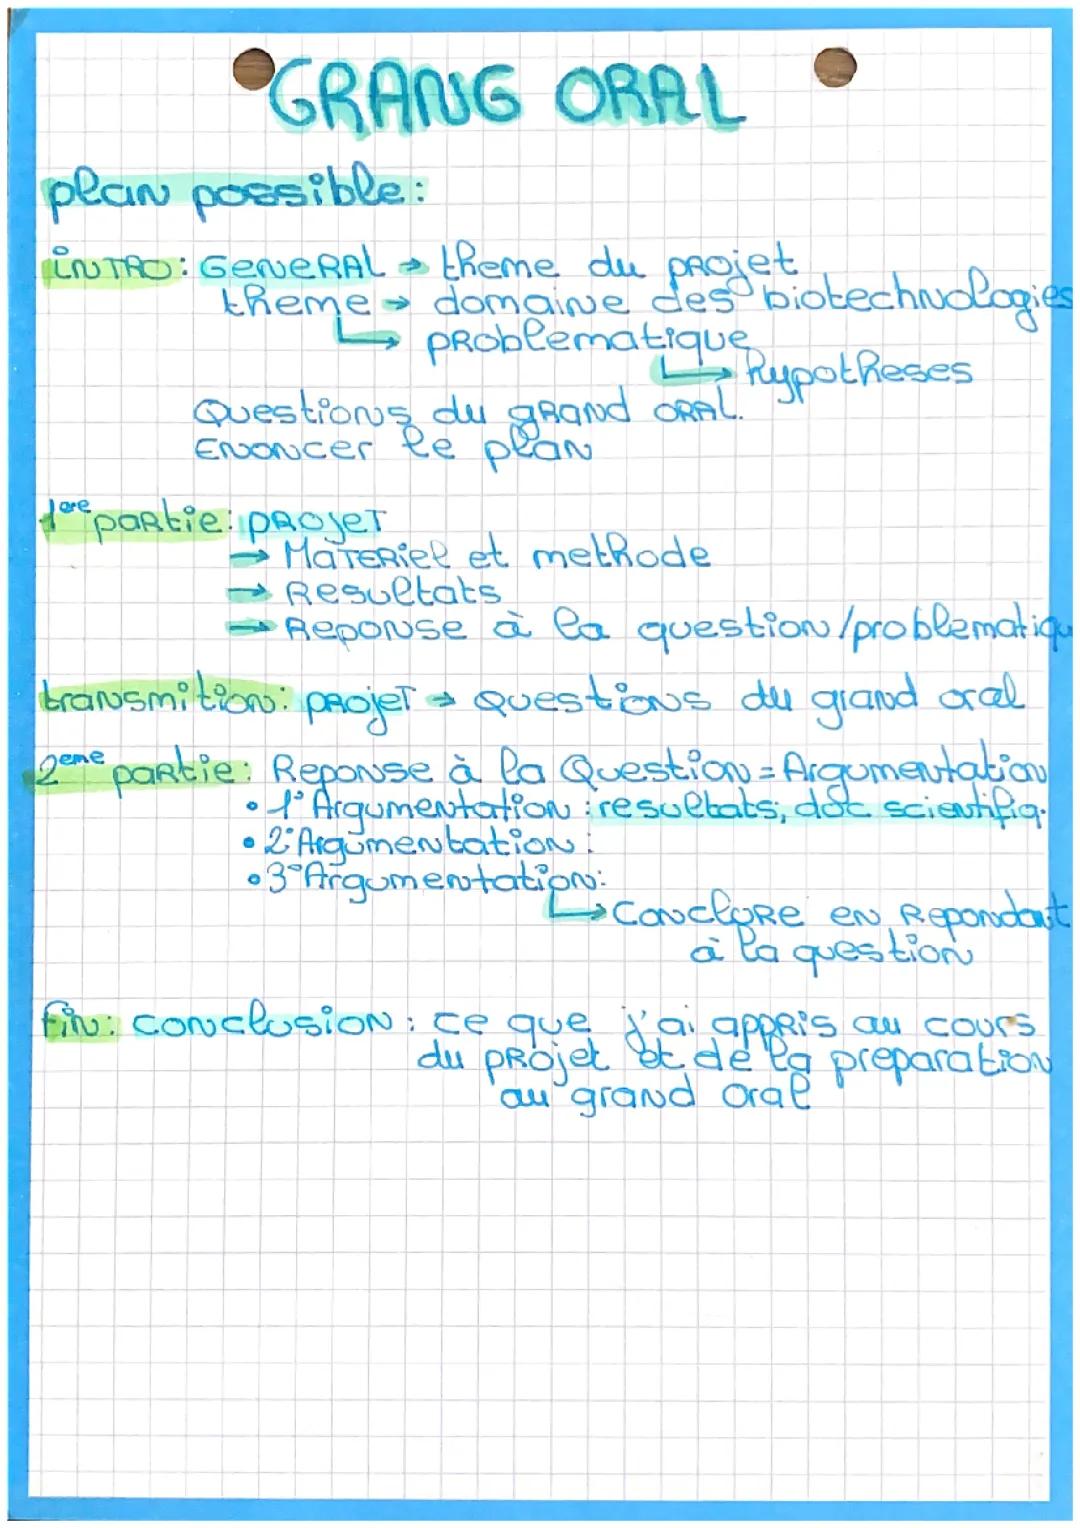 GRANG ORAL
plan possible:
INTRO: GENERAL → theme du projet
theme → domaine des biotechnologies
↳ problematique
↳ hypotheses
Questions du grand oral.
Enoncer le plan
1ere partie: projet
→ Materiel et methode
→ Resultats
→ Reponse à la question/problematiqu
transmition: projet → Questions du grand oral
2eme partie: Reponse à la Question = Argumentation
• 1° Argumentation : resultats, doc scientifiq.
• 2° Argumentation :
• 3° Argumentation:
↳ Conclure en Repondant
à la question
Fin: conclusion : ce que j'ai appris au cours
du projet et de la preparation
au grand oral